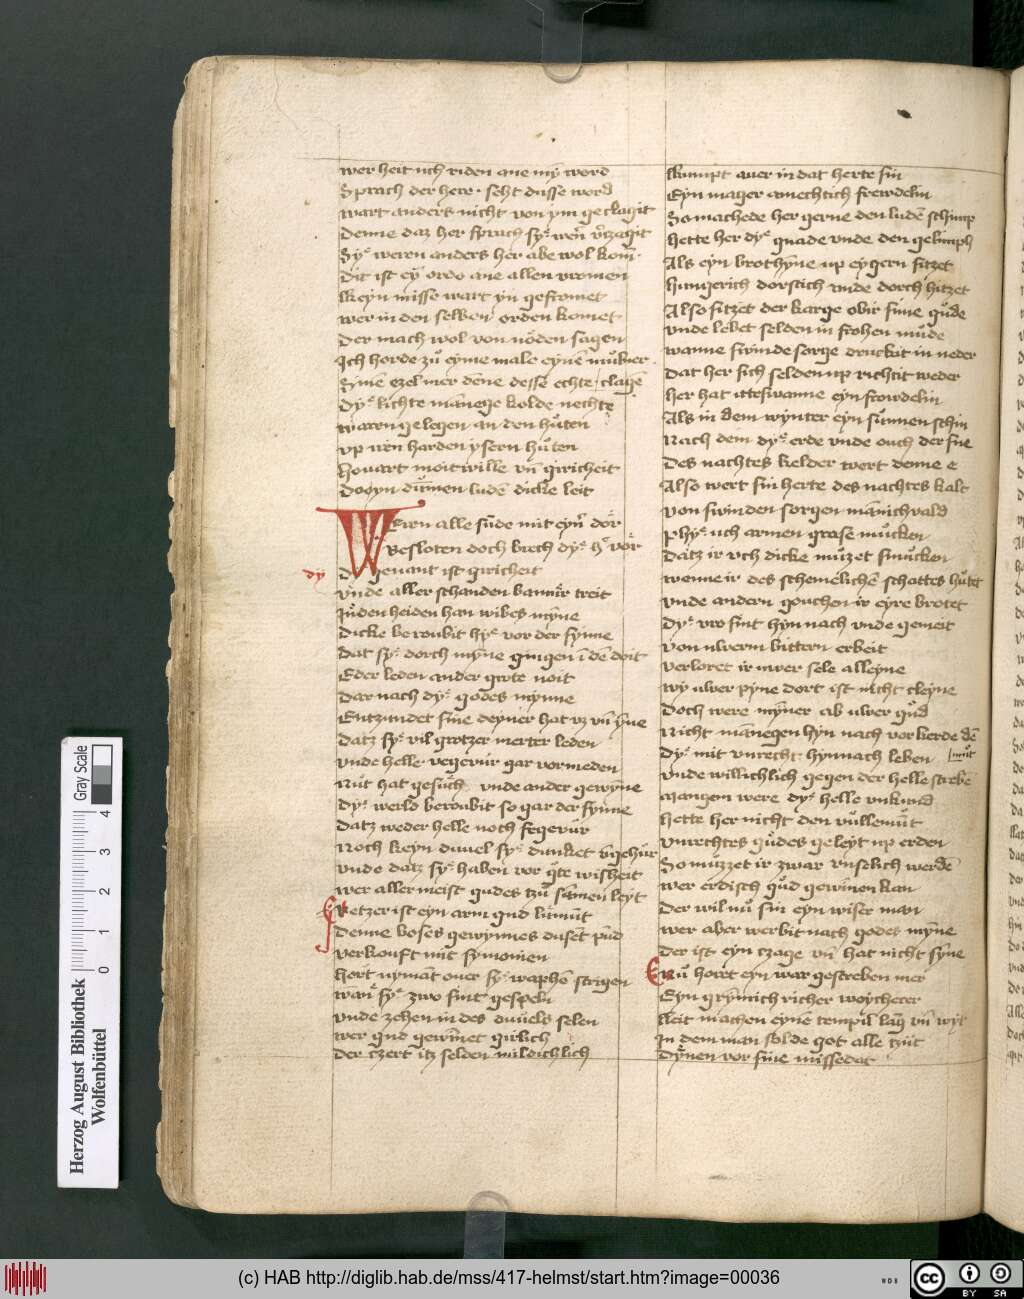 wer heit uch riden ane mÿ word
Sprach der here · seht dusse word
wart anders nicht von ym geclagit
Denne daz her sprach
weren anders her abe wol
Dit ist eÿ ordo ane allen vromen
Keyn misse wart yn gefromet
wer in den selben orden komet
Der mach wol von nöden sagen
Ich horde zů eyme male eynē můlner
ezel mer dēne dessē echte clagē
Dyͤ lichte māncge kolde nechte
waren gelegen an den hůten
up den harden ysern hůten
houart moitwille vn̄ giricheit
ludē dicke leit
alle sūde mit eynͬ dör
Besloten doch brech dyͤ
dy
genant ist giricheit
vnde aller schanden banner treit
Juden heiden han wibes mỹne
Dicke beroubit hyͤ vor der synne
Dat syͤ dorch mỹne gingen ī dē doit
Eder leden ander grote noit
Dar nach dyͤ godes mynne
Entzundet sine deyner hat
Datz syͤ vil grotzer merter leden
vnde helle vegevur gar vormeden
Nůt hat vnde ander gewỹne
Dyͤ werld beroubit so gar der synne
Datz weder helle noch fegevůr
Noch keyn duuel syͤ dunket
vnde datz syͤ haben vor wisheit
wer aller meist gudes leyt
Ketzer ist eyn arm gud
Denne boses gewynnes dusēt pūd
verkouft mit symonien
Hort nymāt ouer syͤ waphē scrigen
syͤ zwo sint gespeln
vnde zehen in des duuels selen
wer gud gewīnet girlich
Der czert iz selden mildichlich
Kumpt auer in dat herte sin
Eyn mager amechtich frewdelin
So machede her gerne den ludē schimp
Hette her dyͤ gnade vnde den gelimph
Als eyn brothỹne up eygern sitzet
Hungerich dorstich vnde dorch hitzet
Also sitzet der karge obir sime gůde
vnde lebet selden in frohen můde
wanne swinde sorge druckit in neder
Dat her sich selden up richtit weder
Her hat itteswanne eyn frowdelin
Als in dem wynter eyn sůnnen schin
Nach dem dyͤ erde vnde ouch der sne
Des nachtes kelder wert denne e
Also wert sin herte des nachtes kalt
von swinden sorgen mānichvald
Phyͤ uch armen grase můcken
Datz ir vch dicke můzet smucken
wenne ir des schemēlichē schattes hůtet
vnde andern gouchen ir eyre brotet
Dyͤ vro sint hyn nach vnde gemeit
von ulverm bittern erbeit
verloret ir uwer sele alleyne
wy ulver pyne dort ist nicht cleyne
Doch were mỹner ab ulver gůd
Nicht mānegen hyn nach vorkerde dē
Dyͤ mit vnrecht hynnach leben můt
vnde willichlich gegen der helle strebē
Mangem were dyͤ helle vnkund
Hette her nicht den
vnrechtes gůdes geleyt up erden
So můzzet ir zwar werdē
wer erdisch gůd gewinnen kan
Der wil nů sin eyn wiser man
wer aber werbit nach godes mỹne
Der ist eyn czage vn̄ hat nicht sỹne
Nů horet eyn war gescreben mer
Eyn grỹmich richer woycherer
Leit machen eynē tempil lāg vn̄ wyt
In dem man solde got alle tzijt
Dỹnen vor sine missedat
Herzog August Bibliothek
Wolfenbüttel
0 1 2 3 4
Gray Scale
(c) HAB http://diglib.hab.de/mss/417-helmst/start.htm?image=00036
WDB
cc BY SA